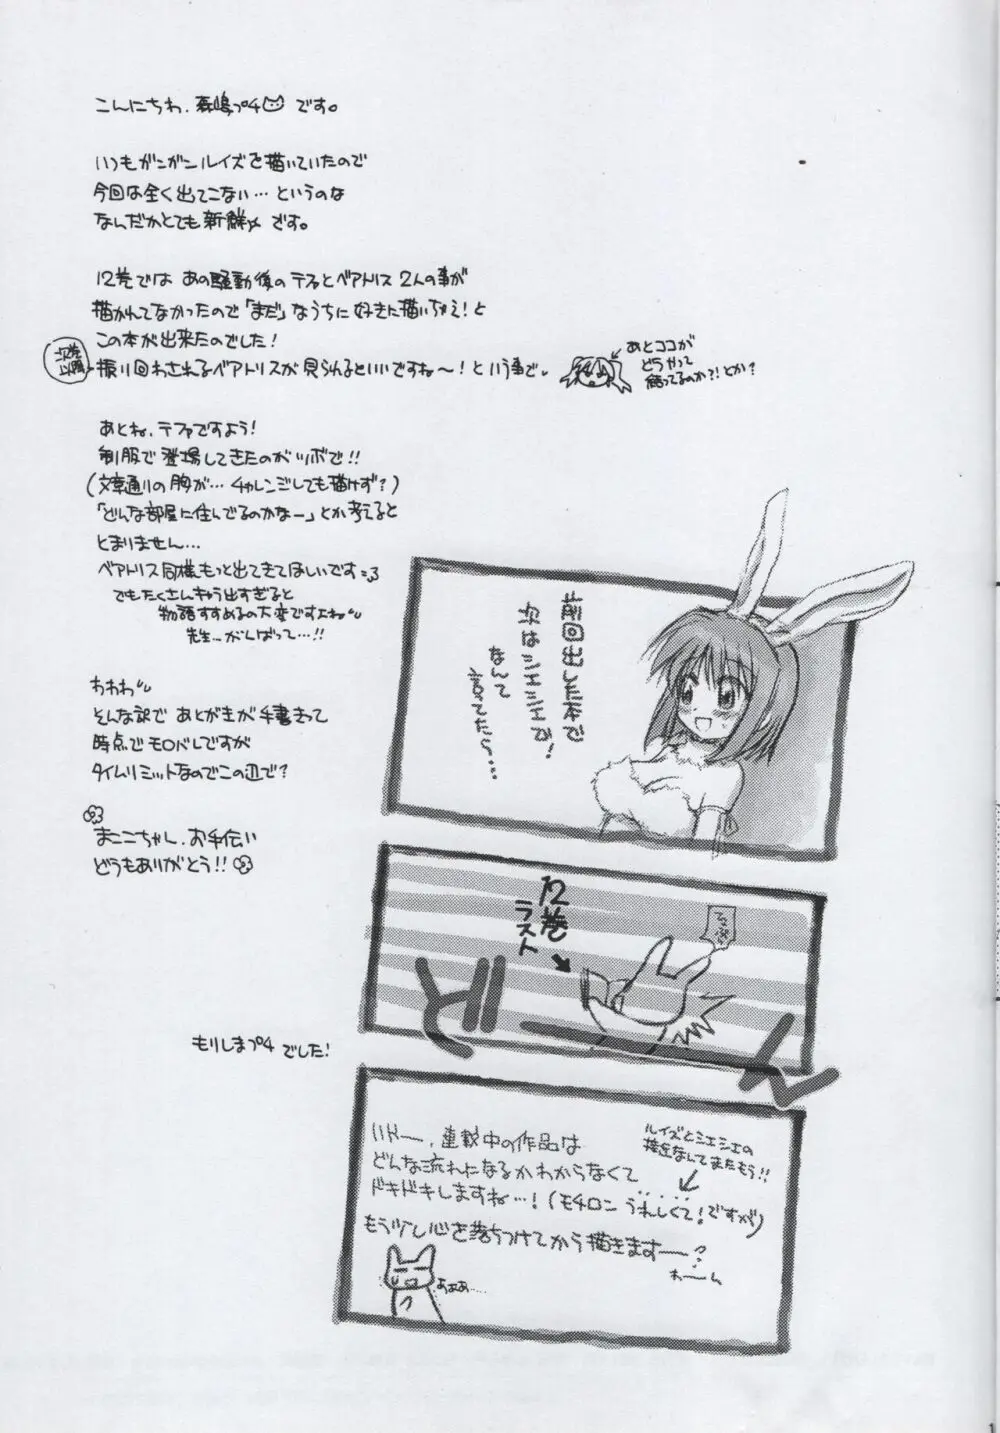 こんにちわ、森嶋プチです。
いつもガンガンルイズを描いていたので
今回は全く出てこない…というのな
なんだかとても新鮮〆です。
12巻では あの騒動後のテファとベアトリス 2人の事が
描かれてなかったので「まだ」なうちに好きに描いちゃえ!と
この本が出来たのでした!
次巻
以降
振り回わされるベアトリスが見られるといいですね〜!という事で。
あとココが
どうやって
結ってるのか?!とか?
あとね、テファですよう!
制服で登場してきたのがツボで!!
(文章通りの胸が…チャレンジしても描けず?)
「どんな部屋に住んでるのかなー」とか考えると
とまりません…
ベアトリス同様もっと出てきてほしいです
でもたくさんキャラ出すぎると
物語すすめるの大変ですよね
先生…がんばって…!!
わわわ
そんな訳で あとがきが手書きって
時点でモロバレですが
タイムリミットなのでこの辺で?
まここちゃん、お手伝い
どうもありがとう!!
もりしまプチ でした!
前回出した本で
次はシエシエで!
なんて
言てたら…
12巻
ラスト
ドーン
いやー、連載中の作品は
どんな流れになるかわからなくて
ドキドキしますね…!(モチロン うれしくて!ですが)
もう少し心を落ちつけてから描きますー?
わーん
ルイズとシエシエの
接近なんてまたもう!!
あぁぁ……